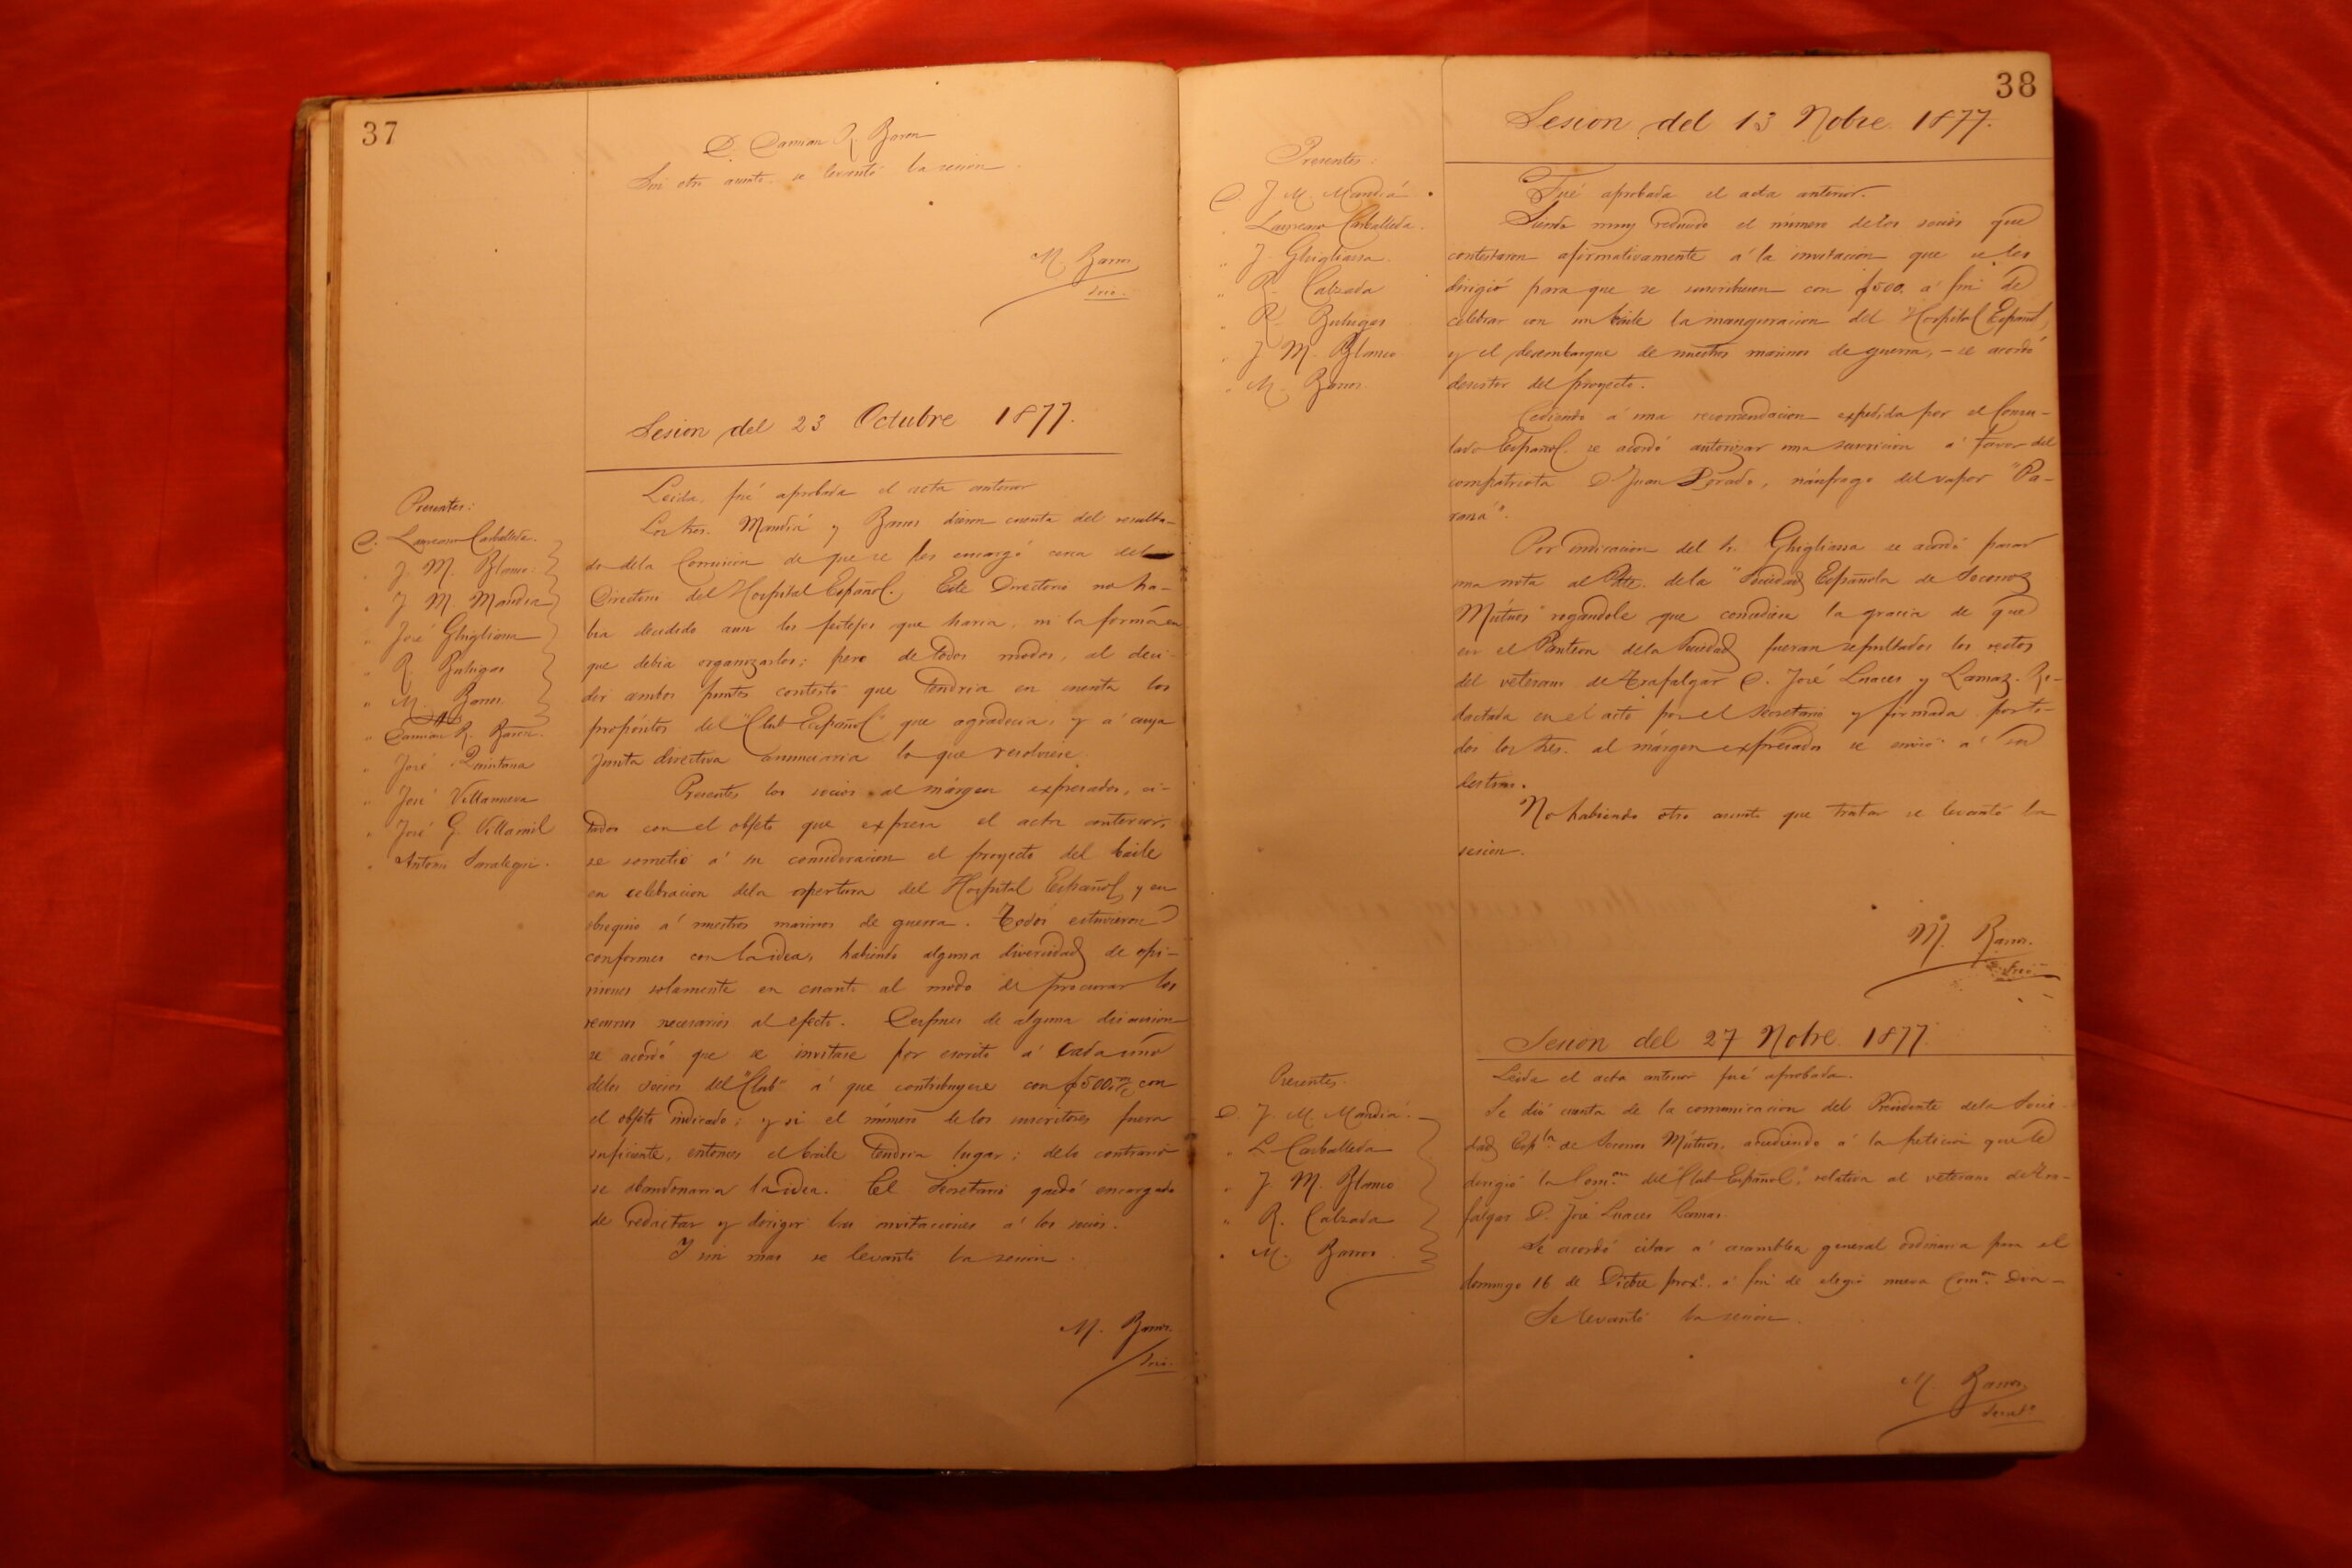 37
D. Damian R. Baron
Sin otro asunto se levantó la sesion.
M. Barros
Srio.
Sesion del 23 Octubre 1877.
Presentes:
D. Laureano Carballeda.
" J. M. Blanco.
" J. M. Mandiá
" José Ghigliassa
" R. Buhigas
" M. Barros
" Damian R. Baron.
" José Quintana
" José Villanueva
" José G. Villamil
" Antonio Saralegui.
Leida, fué aprobada el acta anterior
Los Sres. Mandiá y Barros dieron cuenta del resulta-
do dela Comision de que se les encargó cerca del
Directorio del Hospital Español. Este Directorio no ha-
bia decidido aun los festejos que haria, ni la forma en
que debia organizarlos; pero de todos modos, al deci-
dir ambos puntos contestó que tendria en cuenta los
propósitos del "Club Español" que agradecia, y á cuya
Junta directiva anunciaria lo que resolviese.
Presentes los socios al márgen expresados, ci-
tados con el objeto que expresa el acta anterior,
se sometió á su consideracion el proyecto del baile
en celebracion dela apertura del Hospital Español y en
obsequio á nuestros marinos de guerra. Todos estuvieron
conformes con la idea, habiendo alguna diversidad de opi-
niones solamente en cuanto al modo de procurar los
recursos necesarios al efecto. Despues de alguna discusion
se acordó que se invitase por escrito á cada uno
delos socios del "Club" á que contribuyese con $500 m/c con
el objeto indicado; y si el número de los suscritores fuera
suficiente, entonces el baile tendria lugar; delo contrario
se abandonaria la idea. El Secretario quedó encargado
de redactar y dirigir las invitaciones á los socios.
Y sin mas se levantó la sesion.
M. Barros.
Srio.
38
Sesion del 13 Nobre 1877.
Presentes:
D. J. M. Mandiá
" Laureano Carballeda.
" J. Ghigliassa.
" R. Calzada
" R. Buhigas
" J. M. Blanco
" M. Barros.
Fué aprobada el acta anterior.
Siendo muy reducido el número delos socios que
contestaron afirmativamente á la invitacion que se les
dirigió para que se suscribiesen con $500 á fin de
celebrar con un baile la inauguracion del Hospital Español,
y el desembarque de nuestros marinos de guerra, - se acordó
desistir del proyecto.
Cediendo á una recomendacion expedida por el Consu-
lado Español se acordó autorizar una suscricion á favor del
compatriota D. Juan Dorado, náufrago del vapor "Pa-
raná".
Por indicacion del Sr. Ghigliassa se acordó pasar
una nota al Pte. dela "Sociedad Española de Socorros
Mútuos" rogandole que concediese la gracia de que
en el Panteon dela Sociedad fueran sepultados los restos
del veterano de Trafalgar D. José Luaces y Lamas. Re-
dactada en el acto por el Secretario y firmada por to-
dos los Sres. al márgen expresados se envió á su
destino.
No habiendo otro asunto que tratar se levantó la
sesion.
M. Barros.
Srio.
Sesion del 27 Nobre. 1877.
Presentes.
D. J. M. Mandiá.
" L. Carballeda
" J. M. Blanco
" R. Calzada
" M. Barros
Leida el acta anterior fué aprobada.
Se dió cuenta de la comunicacion del Presidente dela Socie-
dad Espla. de Socorros Mútuos, accediendo á la peticion que le
dirigió la Comon. del "Club Español", relativa al veterano de Tra-
falgar D. José Luaces Lamas.
Se acordó citar á asamblea general ordinaria para el
domingo 16 de Dicbre proxo. á fin de elegir nueva Comn. Dira-
Se levantó la sesion.
M. Barros
Secreto